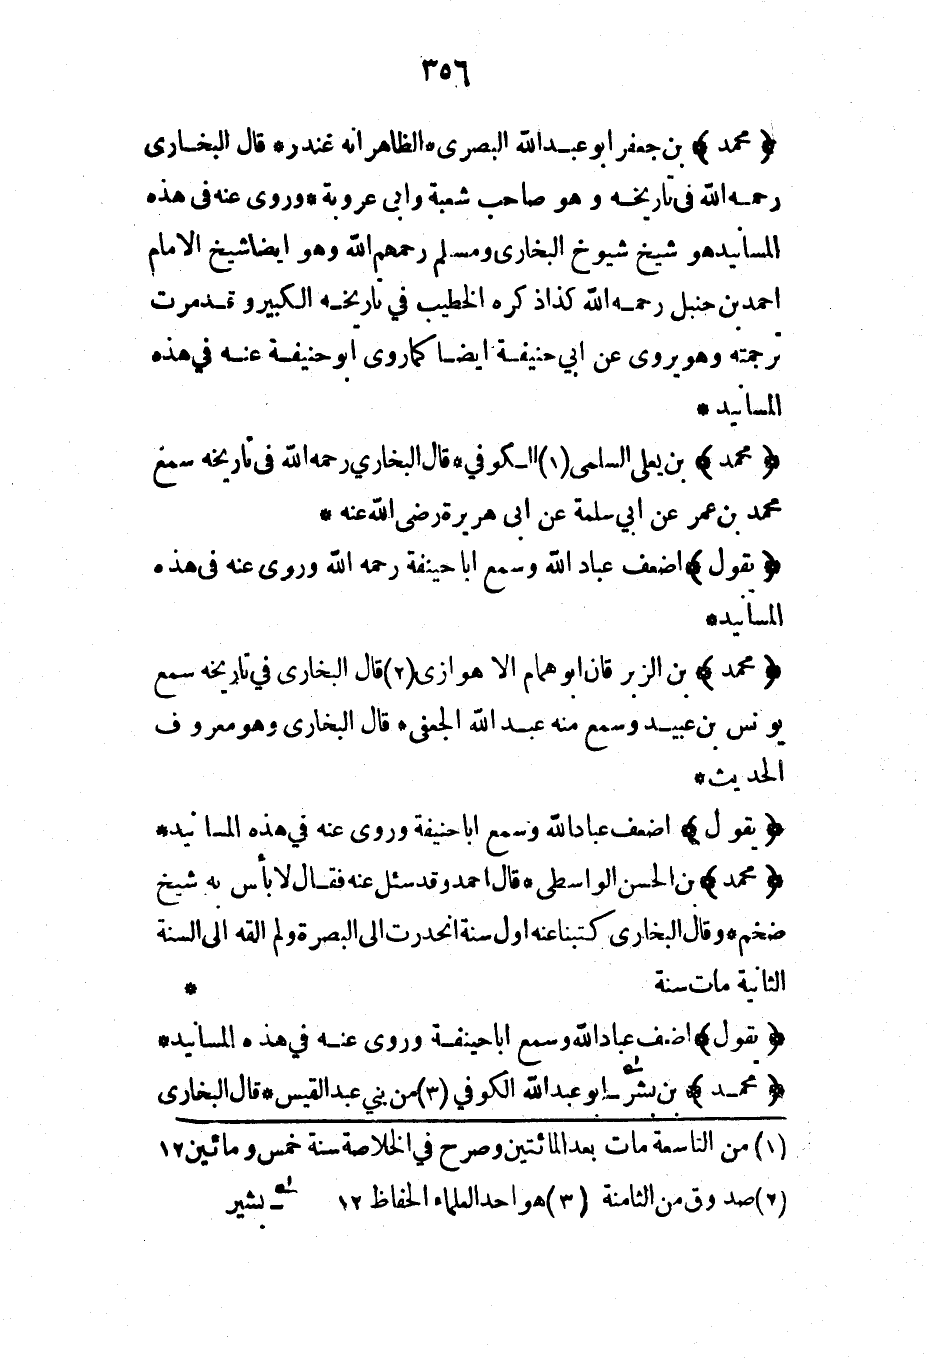 ٣٥٦
﴿ محمد ﴾ بن جعفر ابو عبد الله البصرى * الظاهر انه غندر * قال البخارى
رحمه الله فى تاريخه و هو صاحب شعبة وابى عروبة * وروى عنه فى هذه
المسانيد هو شيخ شيوخ البخارى ومسلم رحمهم الله وهو ايضا شيخ الامام
احمد بن حنبل رحمه الله كذا ذكره الخطيب في تاريخه الكبير و قد مرت
ترجمته وهو يروى عن ابي حنيفة ايضا كما روى ابو حنيفة عنه في هذه
المسانيد *
﴿ محمد ﴾ بن يعلى السلمى (١) الكوفي * قال البخاري رحمه الله فى تاريخه سمع
محمد بن عمر عن ابي سلمة عن ابى هريرة رضى الله عنه *
﴿ يقول ﴾ اضعف عباد الله وسمع ابا حينفة رحمه الله وروى عنه فى هذه
المسانيد *
﴿ محمد ﴾ بن الزبر قان ابو همام الا هوازى (٢) قال البخارى في تاريخه سمع
يونس بن عبيد وسمع منه عبد الله الجعفى * قال البخارى وهو معروف
الحديث *
﴿ يقول ﴾ اضعف عباد الله وسمع ابا حنيفة وروى عنه في هذه المسانيد *
﴿ محمد ﴾ بن الحسن الواسطى * قال احمد وقد سئل عنه فقال لا بأس به شيخ
ضخم * وقال البخارى كتبنا عنه اول سنة انحدرت الى البصرة ولم القه الى السنة
الثانية مات سنة *
﴿ يقول ﴾ اضف عباد الله وسمع ابا حينفة وروى عنه في هذه المسانيد *
﴿ محمد ﴾ بن بشر ابو عبد الله الكوفي (٣) من بني عبد القيس * قال البخارى
(١) من التاسعة مات بعد المائتين وصرح في الخلاصة سنة خمس و مائتين ١٢
(٢) صدوق من الثامنة (٣) هو احد العلماء الحفاظ ١٢ بشير